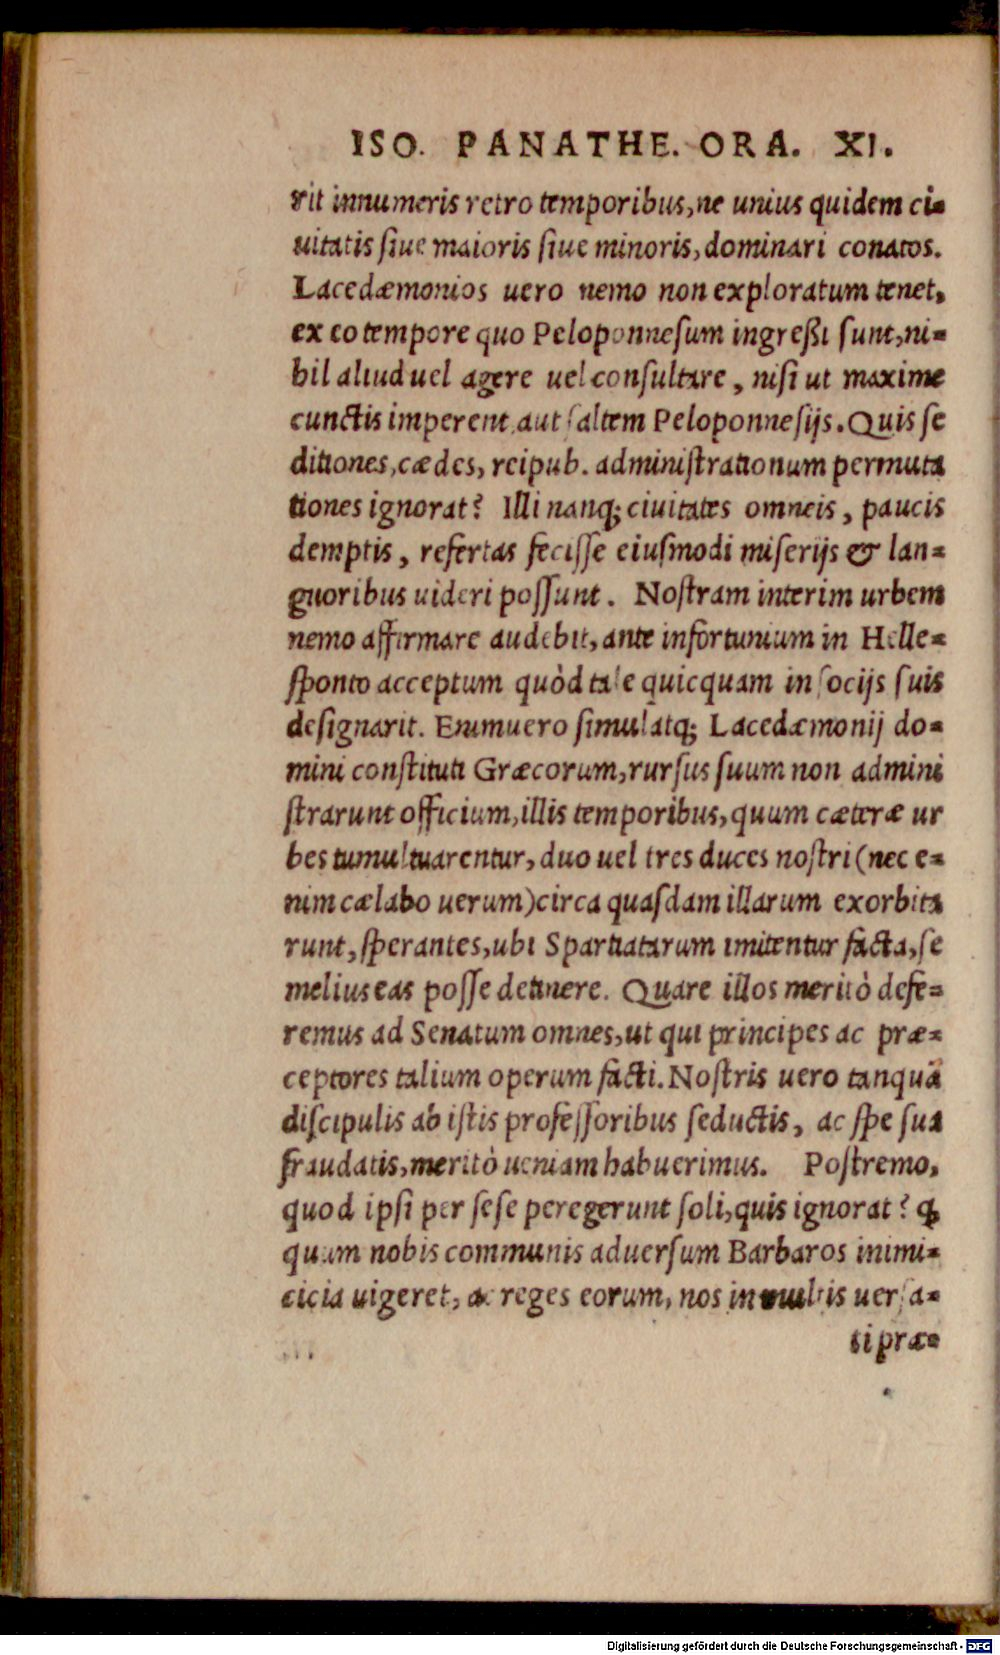 ISO. PANATHE. ORA. XI.
rit innumeris retro temporibus, ne unius quidem ci-
uitatis siue maioris siue minoris, dominari conatos.
Lacedæmonios uero nemo non exploratum tenet,
ex eo tempore quo Peloponnesum ingreßi sunt, ni-
hil aliud uel agere uel consultare, nisi ut maxime
cunctis imperent, aut saltem Peloponnesijs. Quis se
ditiones, cædes, reipub. administrationum permuta
tiones ignorat? Illi nanq; ciuitates omneis, paucis
demptis, refertas fecisse eiusmodi miserijs & lan-
guoribus uideri possunt. Nostram interim urbem
nemo affirmare audebit, ante infortunium in Helle-
sponto acceptum quòd tale quicquam in socijs suis
designarit. Enimuero simulatq; Lacedæmonij do-
mini constituti Græcorum, rursus suum non admini
strarunt officium, illis temporibus, quum cæteræ ur
bes tumultuarentur, duo uel tres duces nostri (nec e-
nim cælabo uerum) circa quasdam illarum exorbita
runt, sperantes, ubi Spartiatarum imitentur facta, se
melius eas posse detinere. Quare illos meritò defe-
remus ad Senatum omnes, ut qui principes ac præ-
ceptores talium operum facti. Nostris uero tanquã
discipulis ab istis professoribus seductis, ac spe sua
fraudatis, meritò ueniam habuerimus. Postremo,
quod ipsi per sese peregerunt soli, quis ignorat? ꝙ
quum nobis communis aduersum Barbaros inimi-
cicia uigeret, ac reges eorum, nos in multis uersa-
ti præ-
Digitalisierung gefördert durch die Deutsche Forschungsgemeinschaft - DFG